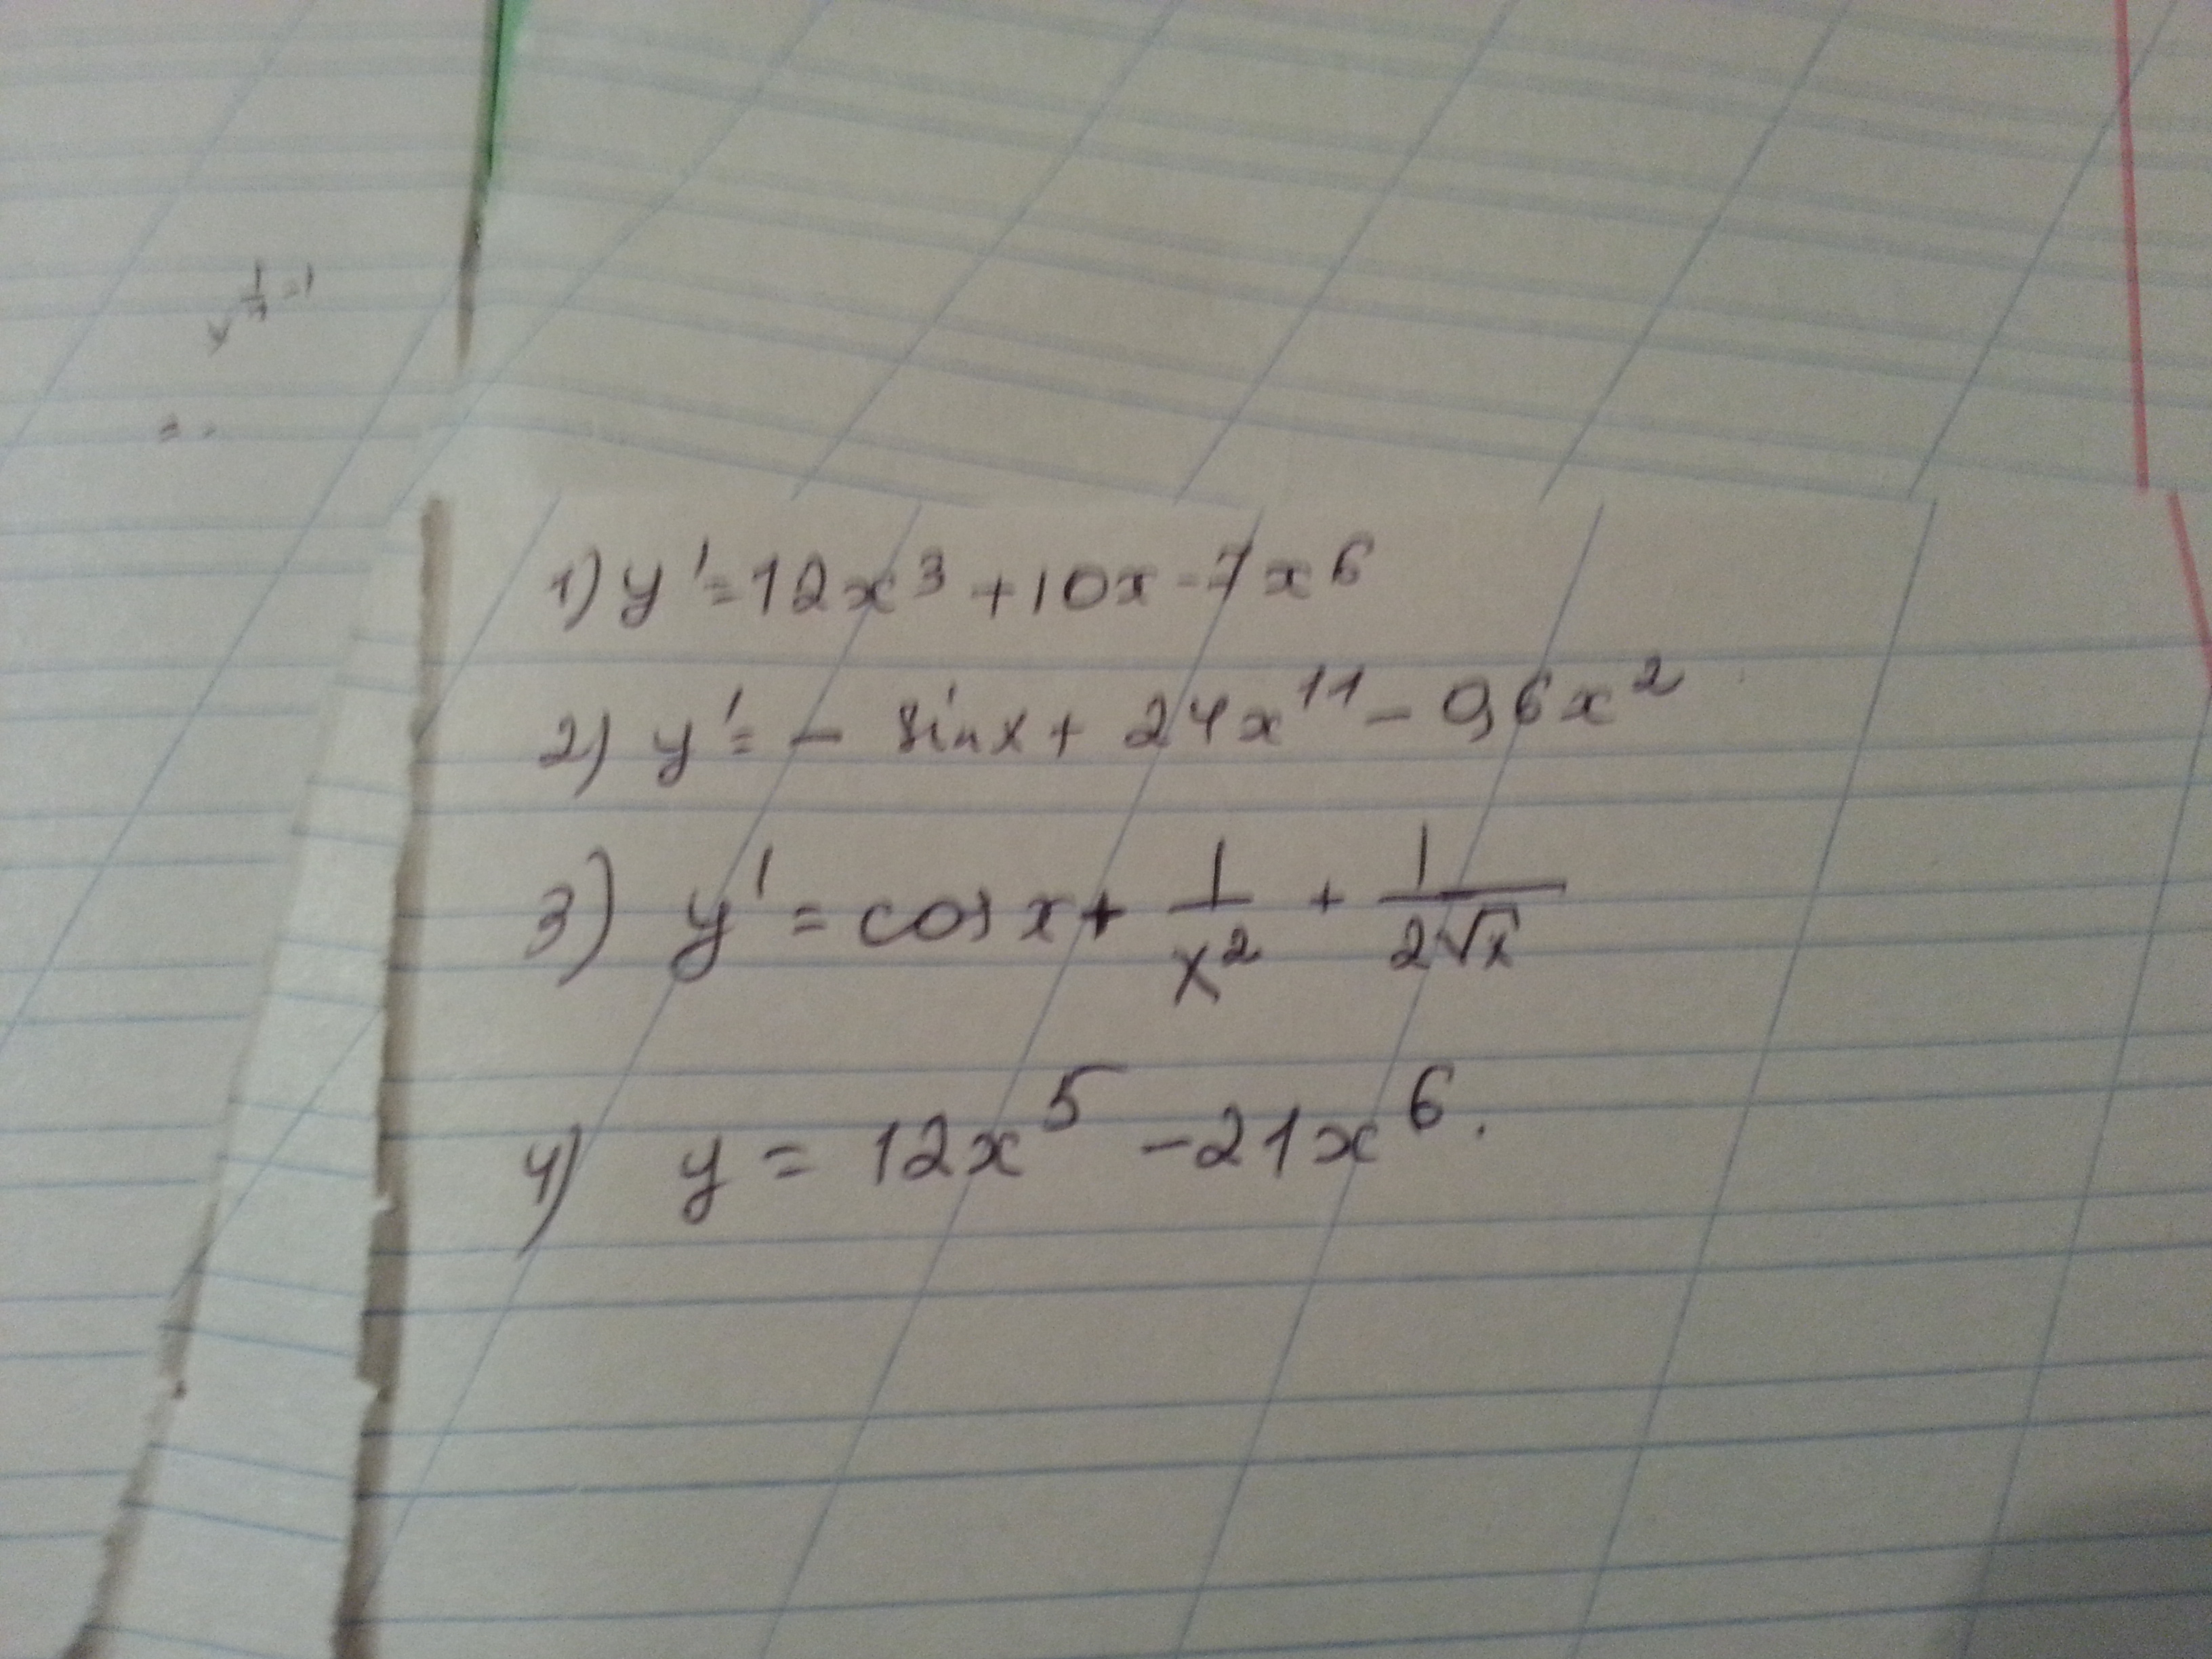 1) y' = 12x³ + 10x - 7x⁶
2) y' = - sin x + 24x¹¹ - 0,6x²
3) y' = cos x + 1/x² + 1/(2√x)
4) y = 12x⁵ - 21x⁶.